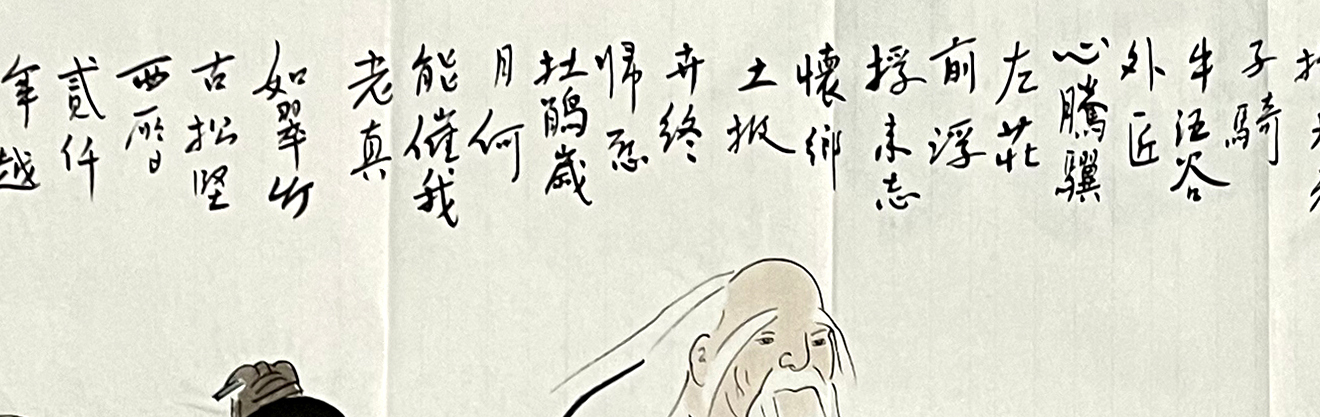 子騎
牛涇谷
外匠
心騰驥
左花
前浮
捊未志
懷鄉
土掀
卉終
帰忍
杜鵑歲
月何
能催我
老真
如翠竹
古松堅
西曆
貳仟
年越